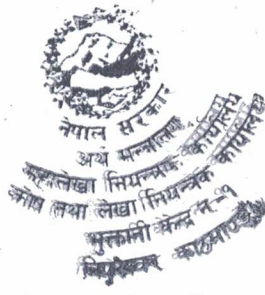 नेपाल सरकार
अर्थ मन्त्रालय
महालेखा नियन्त्रक कार्यालय
कोष तथा लेखा नियन्त्रक कार्यालय
भुक्तानी केन्द्र नं-१
काठमाण्डौ